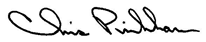 Chris Pinkham